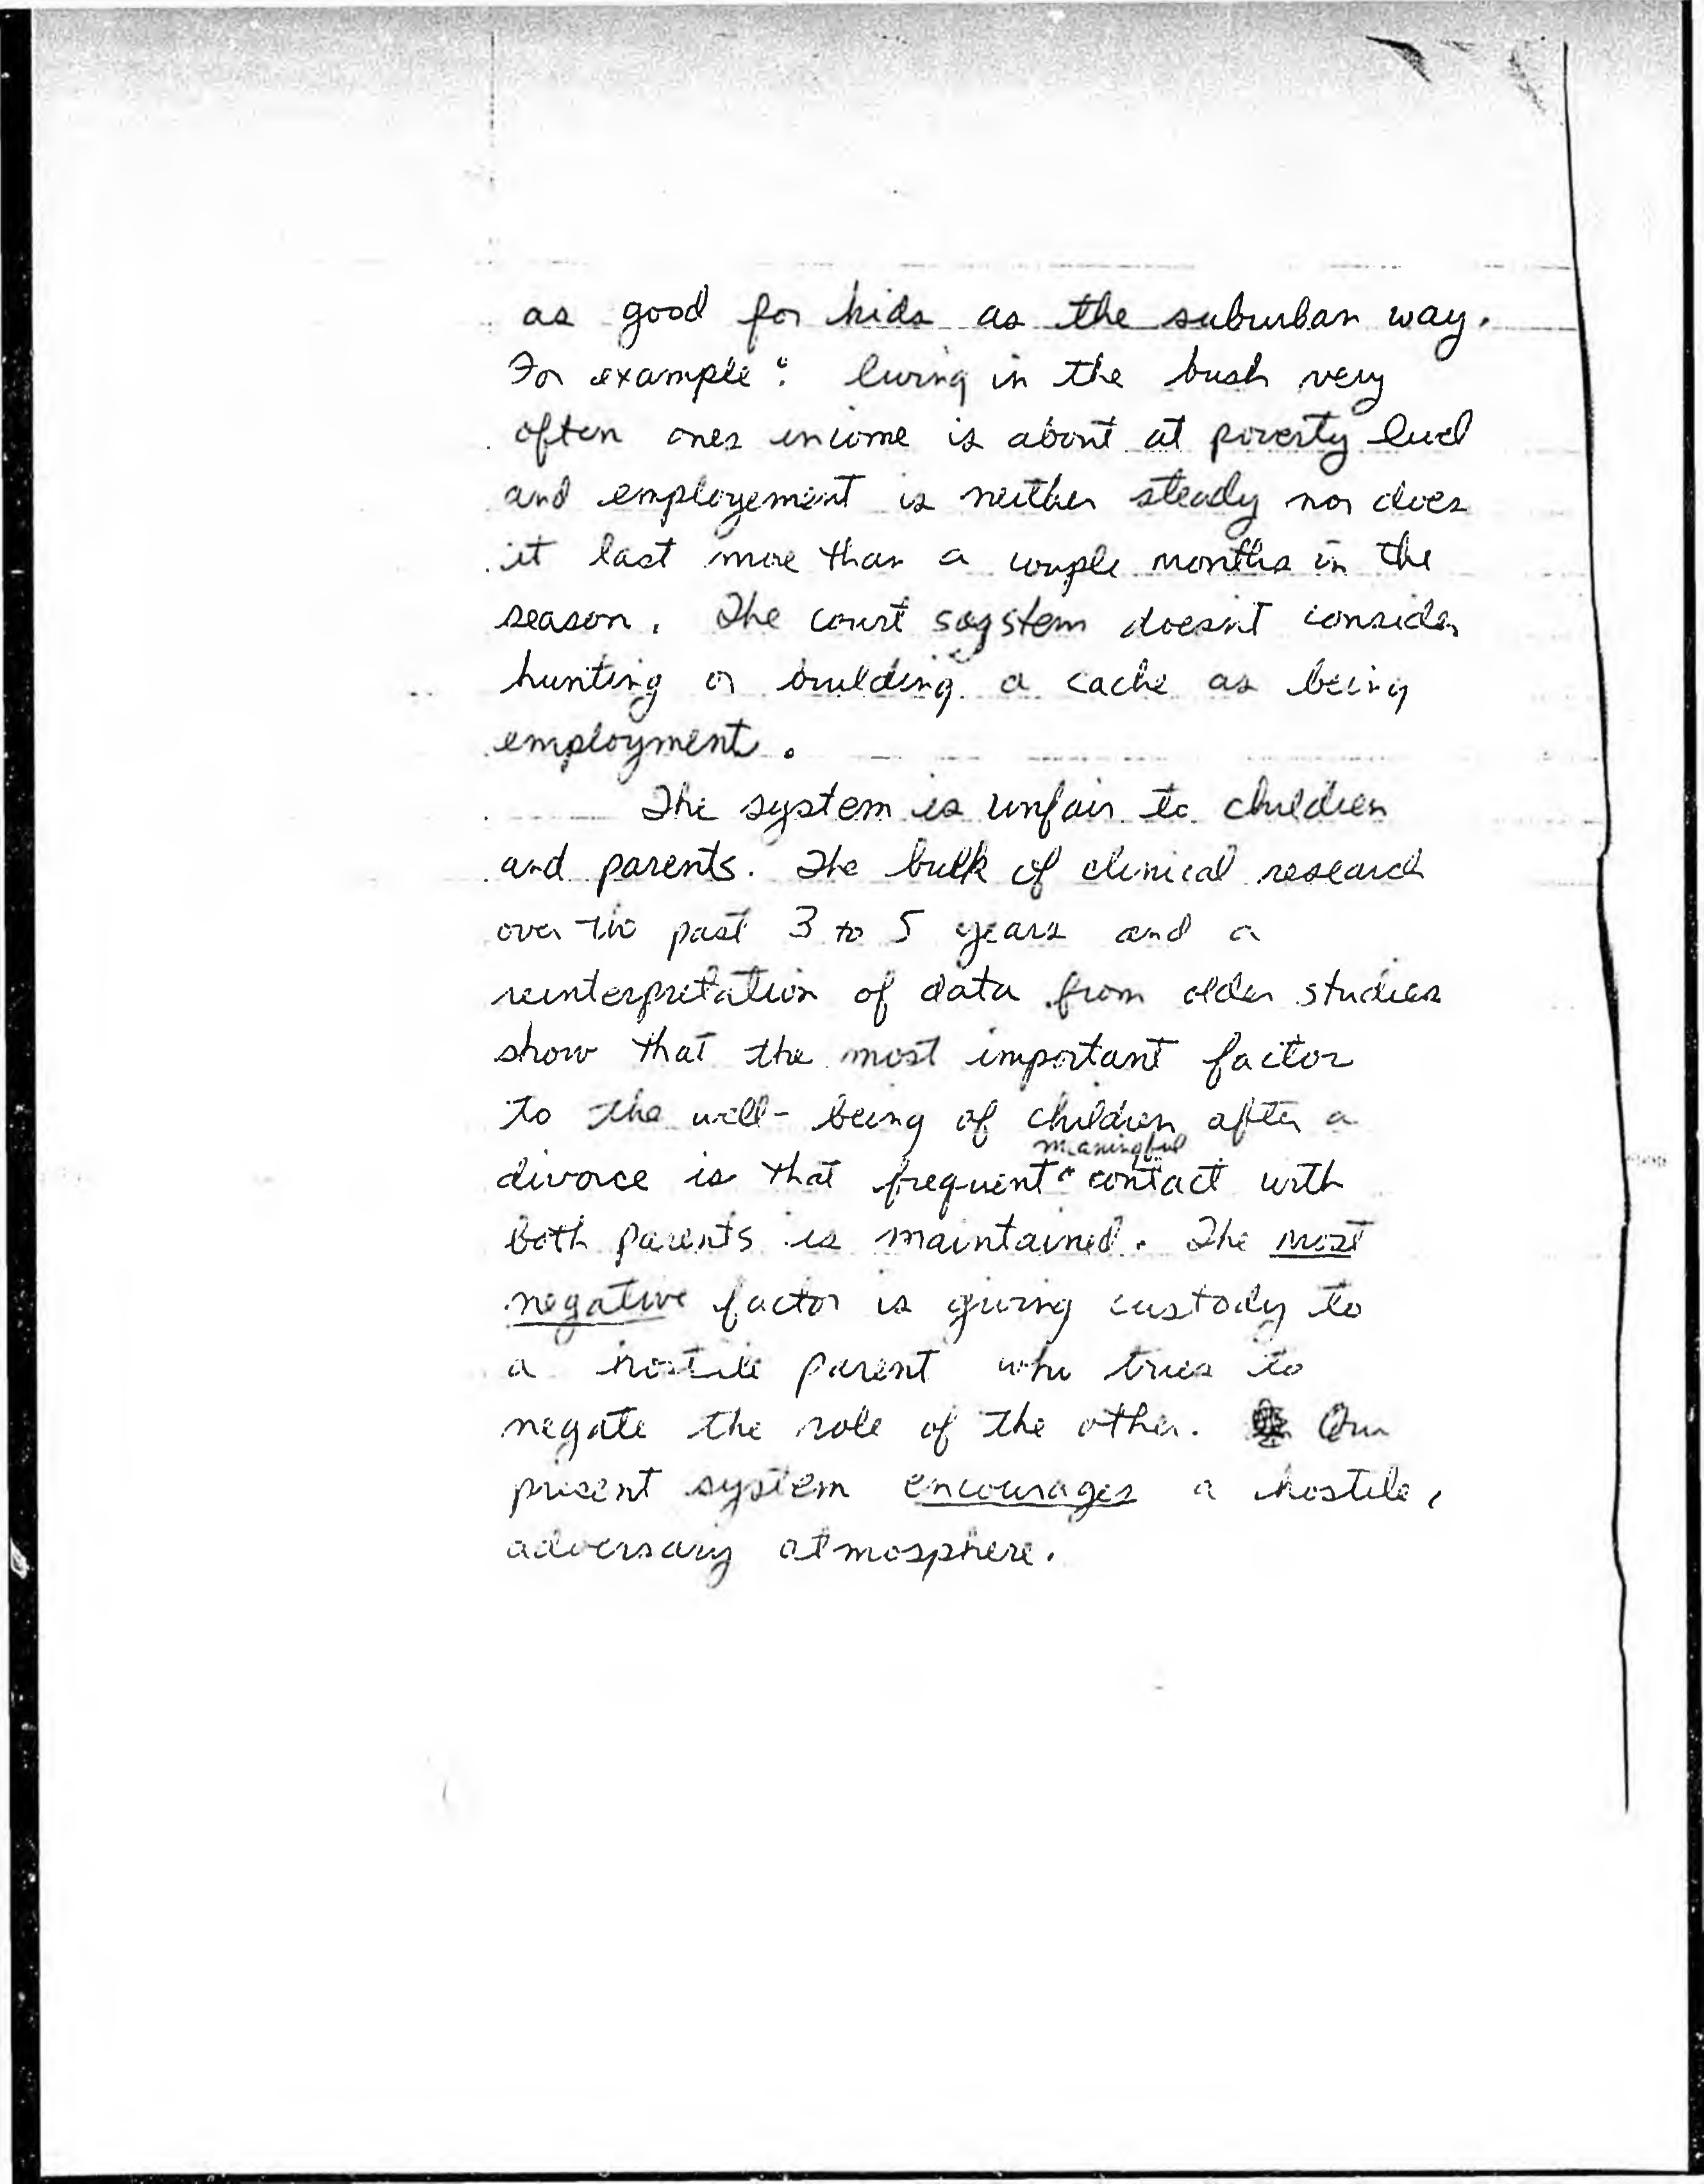 as good for kids as the suburban way.
For example: living in the bush very
often ones income is about at poverty level
and employement is neither steady nor does
it last more than a couple months in the
season. The court soystem doesnt consider
hunting or building a cache as being
employment.
The system is unfair to children
and parents. The bulk of clinical research
over the past 3 to 5 years and a
reinterpretation of data from older studies
show that the most important factor
to the well-being of children after a
meaningful
divorce is that frequent & contact with
both parents is maintained. The most
negative factor is giving custody to
a hostile parent who tries to
negate the role of the other. Our
present system encourages a hostile,
adversary atmosphere.